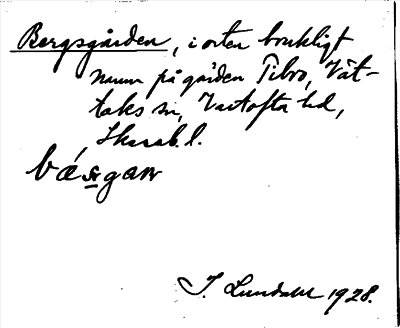 Bergsgården, i orten brukligt
namn på gården Tibro, Vät-
taks sn, Vartofta hd,
Skarab. l.
I. Lundahl 1928.